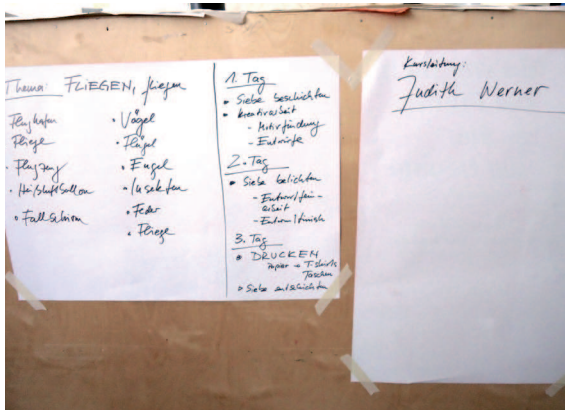 Thema: FLIEGEN, fliegen
Flughafen
Fliege
• Flugzeug
• Heißluftballon
• Fallschirm
• Vögel
• Flügel
• Engel
• Insekten
• Feder
• Fliege
1. Tag
• Siebe beschichten
• Kreativarbeit
- Motivfindung
- Entwürfe
2. Tag
• Siebe belichten
- Entwurffein-
arbeit
- Entwurffinish
3. Tag
• DRUCKEN
Papier + T-Shirts
Taschen
• Siebe entschichten
Kursleitung:
Judith Werner